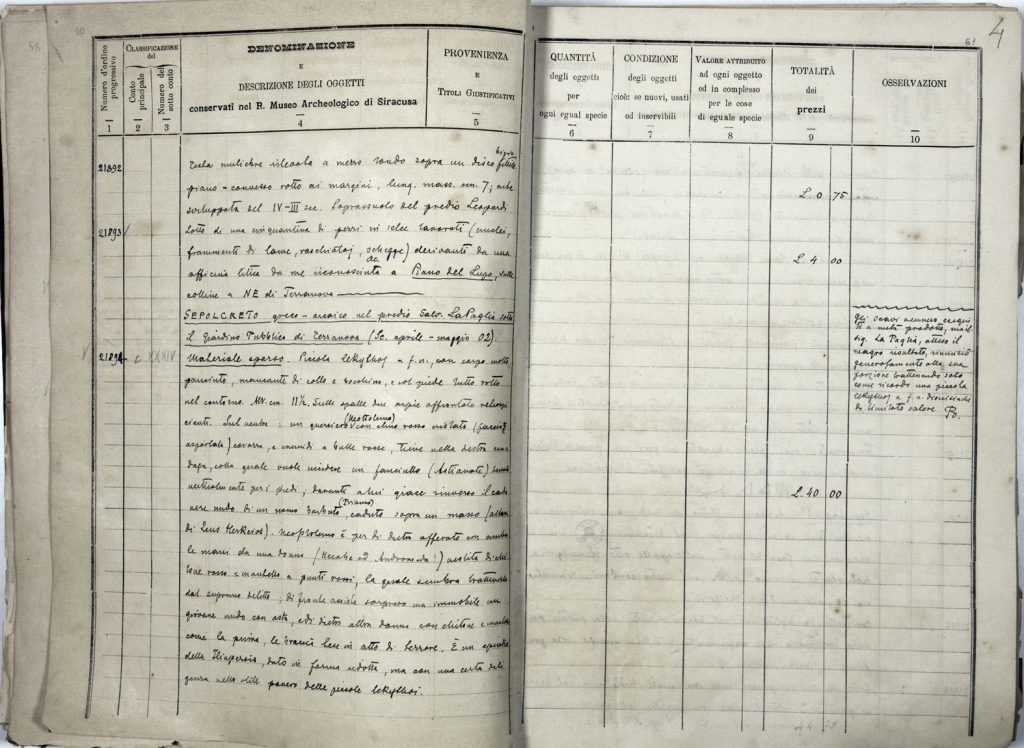 58
60
Numero d'ordine progressivo
1
CLASSIFICAZIONE
del
Conto principale
2
Numero del sotto conto
3
DENOMINAZIONE
E
DESCRIZIONE DEGLI OGGETTI
conservati nel R. Museo Archeologico di Siracusa
4
PROVENIENZA
E
TITOLI GIUSTIFICATIVI
5
21892
Testa muliebre rilevata a mezzo tondo sopra un disco fittile
piano-convesso rotto ai margini, lung. mass. cm. 7; arte
sviluppata del IV-III sec. Soprassuolo del predio Leopardi
21893
Lotto di una cinquantina di pezzi in selce lavorati (nuclei,
frammenti di lame, raschiatoj, schegge) derivanti da una
officina litica da me riconosciuta a Piano del Lupo, sulle
colline a NE di Terranova
SEPOLCRETO greco-arcaico nel predio Salv. La Paglia sotto
il Giardino Pubblico di Terranova (Sc. aprile-maggio 02).
21894 c. XXXIV
Materiale sparso. Piccola lekythos a f. n., con corpo molto
panciuto, mancante di collo e bocchino, e col piede tutto rotto
nel contorno. Alt. cm. 11½. Sulle spalle due arpie affrontate
Nel ventre: un guerriero (Neottolemo) con elmo rosso cristato
asportate) corazza, e cnemidi a bulle rosse, tiene nella destra una
daga, colla quale vuole uccidere un fanciullo (Astianatte) tenuto
verticalmente per i piedi, davanti a lui giace rinverso il cada
vere nudo di un uomo barbato (Priamo), caduto sopra un masso (altare
di Zeus Herkeios). Neoptolemo è per di dietro afferrato con ambo
le mani da una donna (Hecabe od Andromaca?) vestita di chi
tone rosso e mantello a punti rossi, la quale sembra trattenerlo
dal supremo delitto; di fronte assiste sorpreso ma immobile un
giovane nudo con asta, e di dietro altra donna con chitone e mantello
come la prima, le braccia tese in atto di terrore. È un episodio
della Iliupersis, dato in forma ridotta, ma con una certa dili
genza nello stile povero delle piccole lekythoi.
61
4
QUANTITÀ
degli oggetti
per
ogni egual specie
6
CONDIZIONE
degli oggetti
cioè: se nuovi, usati
od inservibili
7
VALORE ATTRIBUITO
ad ogni oggetto
od in complesso
per le cose
di eguale specie
8
TOTALITÀ
dei
prezzi
9
OSSERVAZIONI
10
L. 0 75
L. 4 00
L. 40 00
Gli scavi vennero esegui
ti a metà prodotto, ma il
sig. La Paglia, atteso il
magro risultato, rinunciò
generosamente alla sua
porzione trattenendo solo
come ricordo una piccola
lekythos a f. n. dionisiaca
di limitato valore